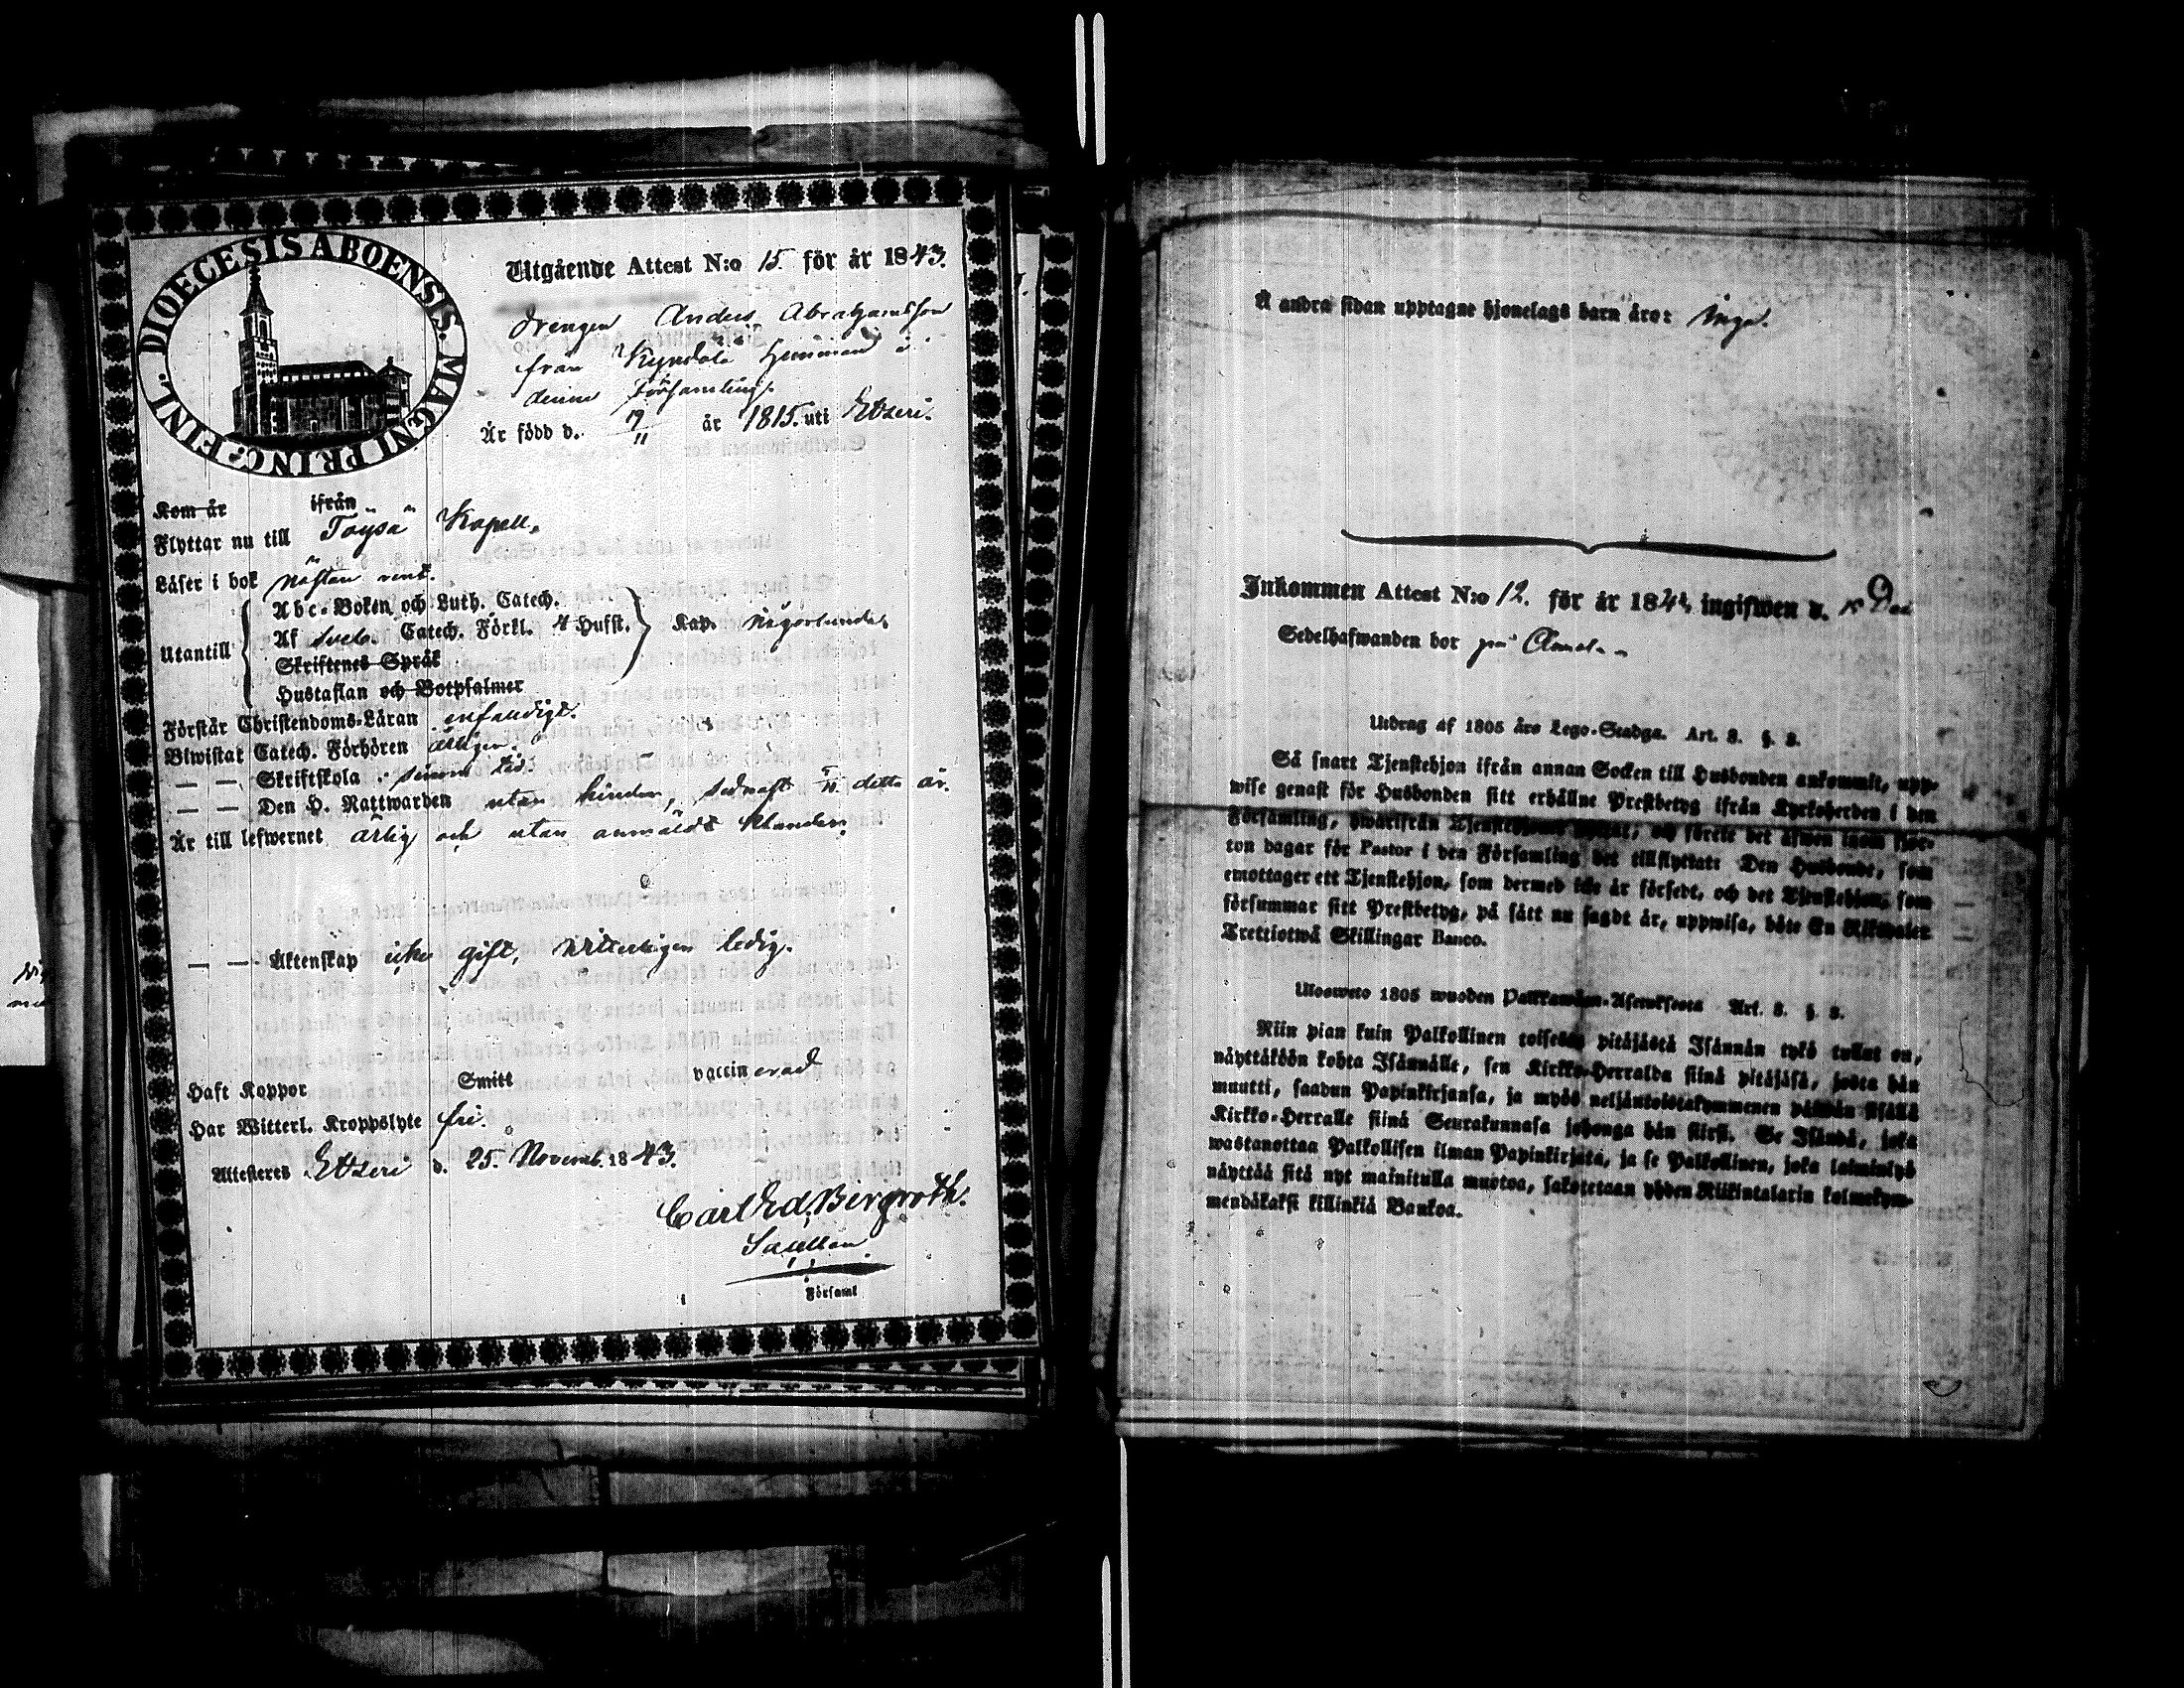 DIOECESIS ABOENSIS. MAGNI PRINC: FINL.
Utgående Attest N:o 15. för år 1843.
Drengen Anders Abrahamsson
från Hemman i
denne Församling.
Är född d. år 1815. uti Etseri.
Kom år ifrån
Flyttar nu till Töysä Kapell.
Läser i bok nästan rent.
Utantill
Abc-Boken och Luth. Catech.
Af Sveb. Catech. Förkl. 4 Hufst. Kap. någorlunda.
Skriftenes Språk
Hustaflan och Botpsalmer
Förstår Christendoms-Läran enfaldigt.
Biwistat Catech. Förhören årligen.
— — Skriftskola samma tid.
— — Den H. Nattwarden utan hinder, sednast detta år.
Är till lefwernet ärlig och utan anmäldt klander.
— — Äktenskap icke gift, witterligen ledig.
Haft Koppor Smitt vaccinerad
Har Witterl. Kroppslyte fri.
Attesteres Etseri d. 25. Novemb. 1843.
Carl Ed. Bergroth.
Sacellan
Församl
Å andra sidan upptagne hjonelags barn äro: Inga.
Inkommen Attest N:o 12. för år 184 ingifwen d.
Sedelhafwanden bor på
Utdrag af 1805 års Lego-Stadga. Art. 8. §. 8.
Så snart Tjenstehjon ifrån annan Socken till Husbonden ankommit, upp-
wise genast för Husbonden sitt erhållne Prestbetyg ifrån Kyrkoherden i den
Församling, hwarifrån och förete det äfwen inom fjor-
ton dagar för Pastor i den Församling det tillflyttat: Den Husbonde, som
emottager ett Tjenstehjon, som dermed icke är försedt, och det Tjenstehjon, som
försummar sitt Prestbetyg, på sätt nu sagdt är, uppwisa, böte En Riksdaler
Trettiotwå Skillingar Banco.
Ulosweto 1805 wuoden Palkkawäen-Asetuksesta Art. 8. §. 8.
Niin pian kuin Palkollinen toisesta pitäjästä Isännän tykö tullut on,
näyttäköön kohta Isännälle, sen Kirkko-Herralda siinä pitäjäsä, josta hän
muutti, saadun Papinkirjansa, ja myös neljäntoistakymmenen päiwän sisällä
Kirkko-Herralle siinä Seurakunnasa johonga hän siirsi. Se Isändä, joka
wastanottaa Palkollisen ilman Papinkirjata, ja se Palkollinen, joka laiminlyö
näyttää sitä nyt mainitulla muotoa, sakotetaan yhden Riikintalarin kolmekym-
mendäkaksi killinkiä Bankoa.